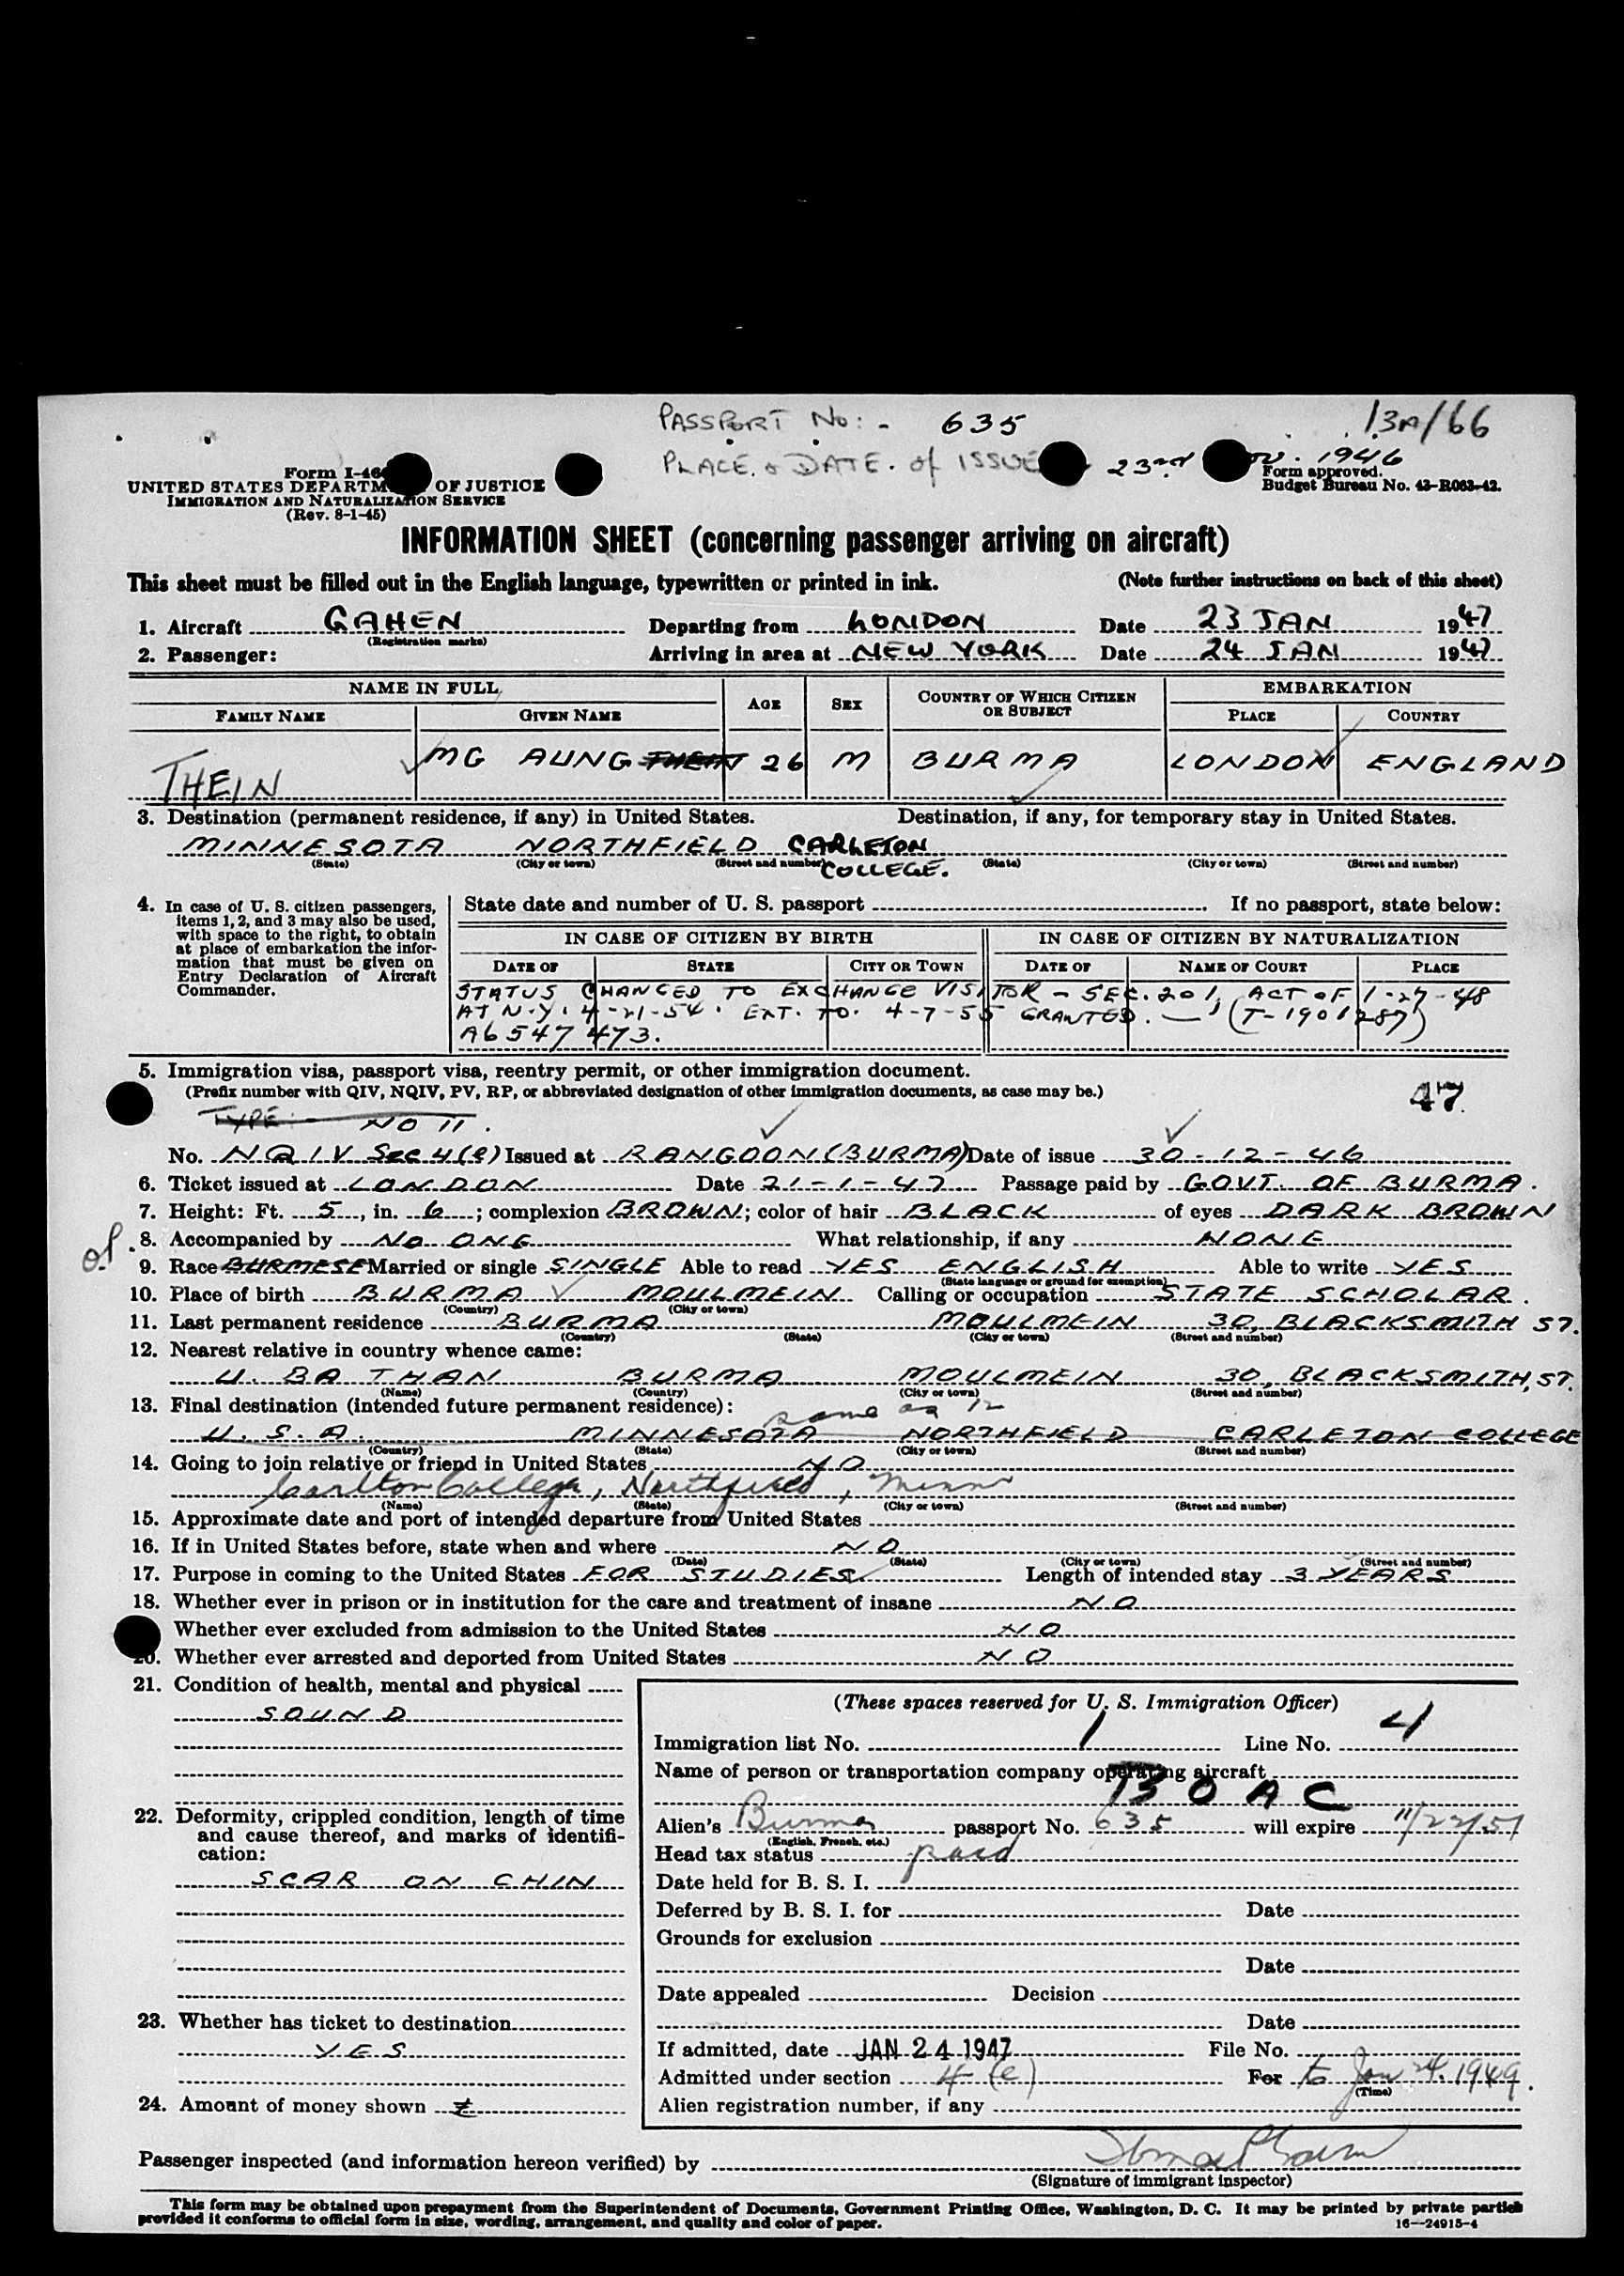 PASSPORT No:- 635
13A/66
PLACE. & DATE. of ISSUE 23rd 1946
Form I-46
UNITED STATES DEPARTM OF JUSTICE
IMMIGRATION AND NATURALIZATION SERVICE
(Rev. 8-1-45)
Form approved.
Budget Bureau No. 43-R063-42.
INFORMATION SHEET (concerning passenger arriving on aircraft)
This sheet must be filled out in the English language, typewritten or printed in ink. (Note further instructions on back of this sheet)
1. Aircraft GAHEN Departing from LONDON Date 23 JAN 1947
(Registration marks)
2. Passenger: Arriving in area at NEW YORK Date 24 JAN 1947
NAME IN FULL AGE SEX COUNTRY OF WHICH CITIZEN OR SUBJECT EMBARKATION
FAMILY NAME GIVEN NAME PLACE COUNTRY
THEIN MG AUNG THEIN 26 M BURMA LONDON ENGLAND
3. Destination (permanent residence, if any) in United States. Destination, if any, for temporary stay in United States.
MINNESOTA NORTHFIELD CARLETON COLLEGE.
(State) (City or town) (Street and number) (State) (City or town) (Street and number)
4. In case of U. S. citizen passengers, items 1, 2, and 3 may also be used, with space to the right, to obtain at place of embarkation the information that must be given on Entry Declaration of Aircraft Commander.
State date and number of U. S. passport If no passport, state below:
IN CASE OF CITIZEN BY BIRTH IN CASE OF CITIZEN BY NATURALIZATION
DATE OF STATE CITY OR TOWN DATE OF NAME OF COURT PLACE
STATUS CHANGED TO EXCHANGE VISITOR - SEC. 201, ACT OF 1-27-48
AT N.Y. 4-21-54. EXT. TO. 4-7-55 GRANTED. — (T-1901287)
A6547473.
5. Immigration visa, passport visa, reentry permit, or other immigration document.
(Prefix number with QIV, NQIV, PV, RP, or abbreviated designation of other immigration documents, as case may be.)
47
TYPE: NO 11.
No. NQIV Sec 4(e) Issued at RANGOON (BURMA) Date of issue 30-12-46
6. Ticket issued at LONDON Date 21-1-47 Passage paid by GOVT. OF BURMA.
7. Height: Ft. 5, in. 6; complexion BROWN; color of hair BLACK of eyes DARK BROWN
8. Accompanied by NO ONE What relationship, if any NONE
9. Race BURMESE Married or single SINGLE Able to read YES ENGLISH Able to write YES
(State language or ground for exemption)
10. Place of birth BURMA MOULMEIN Calling or occupation STATE SCHOLAR.
(Country) (City or town)
11. Last permanent residence BURMA MOULMEIN 30, BLACKSMITH ST.
(Country) (State) (City or town) (Street and number)
12. Nearest relative in country whence came:
U. BA THAN BURMA MOULMEIN 30, BLACKSMITH, ST.
(Name) (Country) (City or town) (Street and number)
13. Final destination (intended future permanent residence): same as 12
U.S.A. MINNESOTA NORTHFIELD CARLETON COLLEGE
(Country) (State) (City or town) (Street and number)
14. Going to join relative or friend in United States NO
Carlton College, Northfield, Minn
(Name) (State) (City or town) (Street and number)
15. Approximate date and port of intended departure from United States
16. If in United States before, state when and where NO
(Date) (State) (City or town) (Street and number)
17. Purpose in coming to the United States FOR STUDIES Length of intended stay 3 YEARS
18. Whether ever in prison or in institution for the care and treatment of insane NO
Whether ever excluded from admission to the United States NO
20. Whether ever arrested and deported from United States NO
21. Condition of health, mental and physical
SOUND
22. Deformity, crippled condition, length of time and cause thereof, and marks of identification:
SCAR ON CHIN
23. Whether has ticket to destination
YES
24. Amount of money shown
(These spaces reserved for U. S. Immigration Officer)
Immigration list No. 1 Line No. 4
Name of person or transportation company operating aircraft
BOAC
Alien's Burma passport No. 635 will expire 11/22/51
(English, French, etc.)
Head tax status paid
Date held for B. S. I.
Deferred by B. S. I. for Date
Grounds for exclusion
Date
Date appealed Decision
Date
If admitted, date JAN 24 1947 File No.
Admitted under section 4 (e) For to Jan 24. 1949.
(Time)
Alien registration number, if any
Passenger inspected (and information hereon verified) by
(Signature of immigrant inspector)
This form may be obtained upon prepayment from the Superintendent of Documents, Government Printing Office, Washington, D. C. It may be printed by private parties
provided it conforms to official form in size, wording, arrangement, and quality and color of paper. 16—24915-4